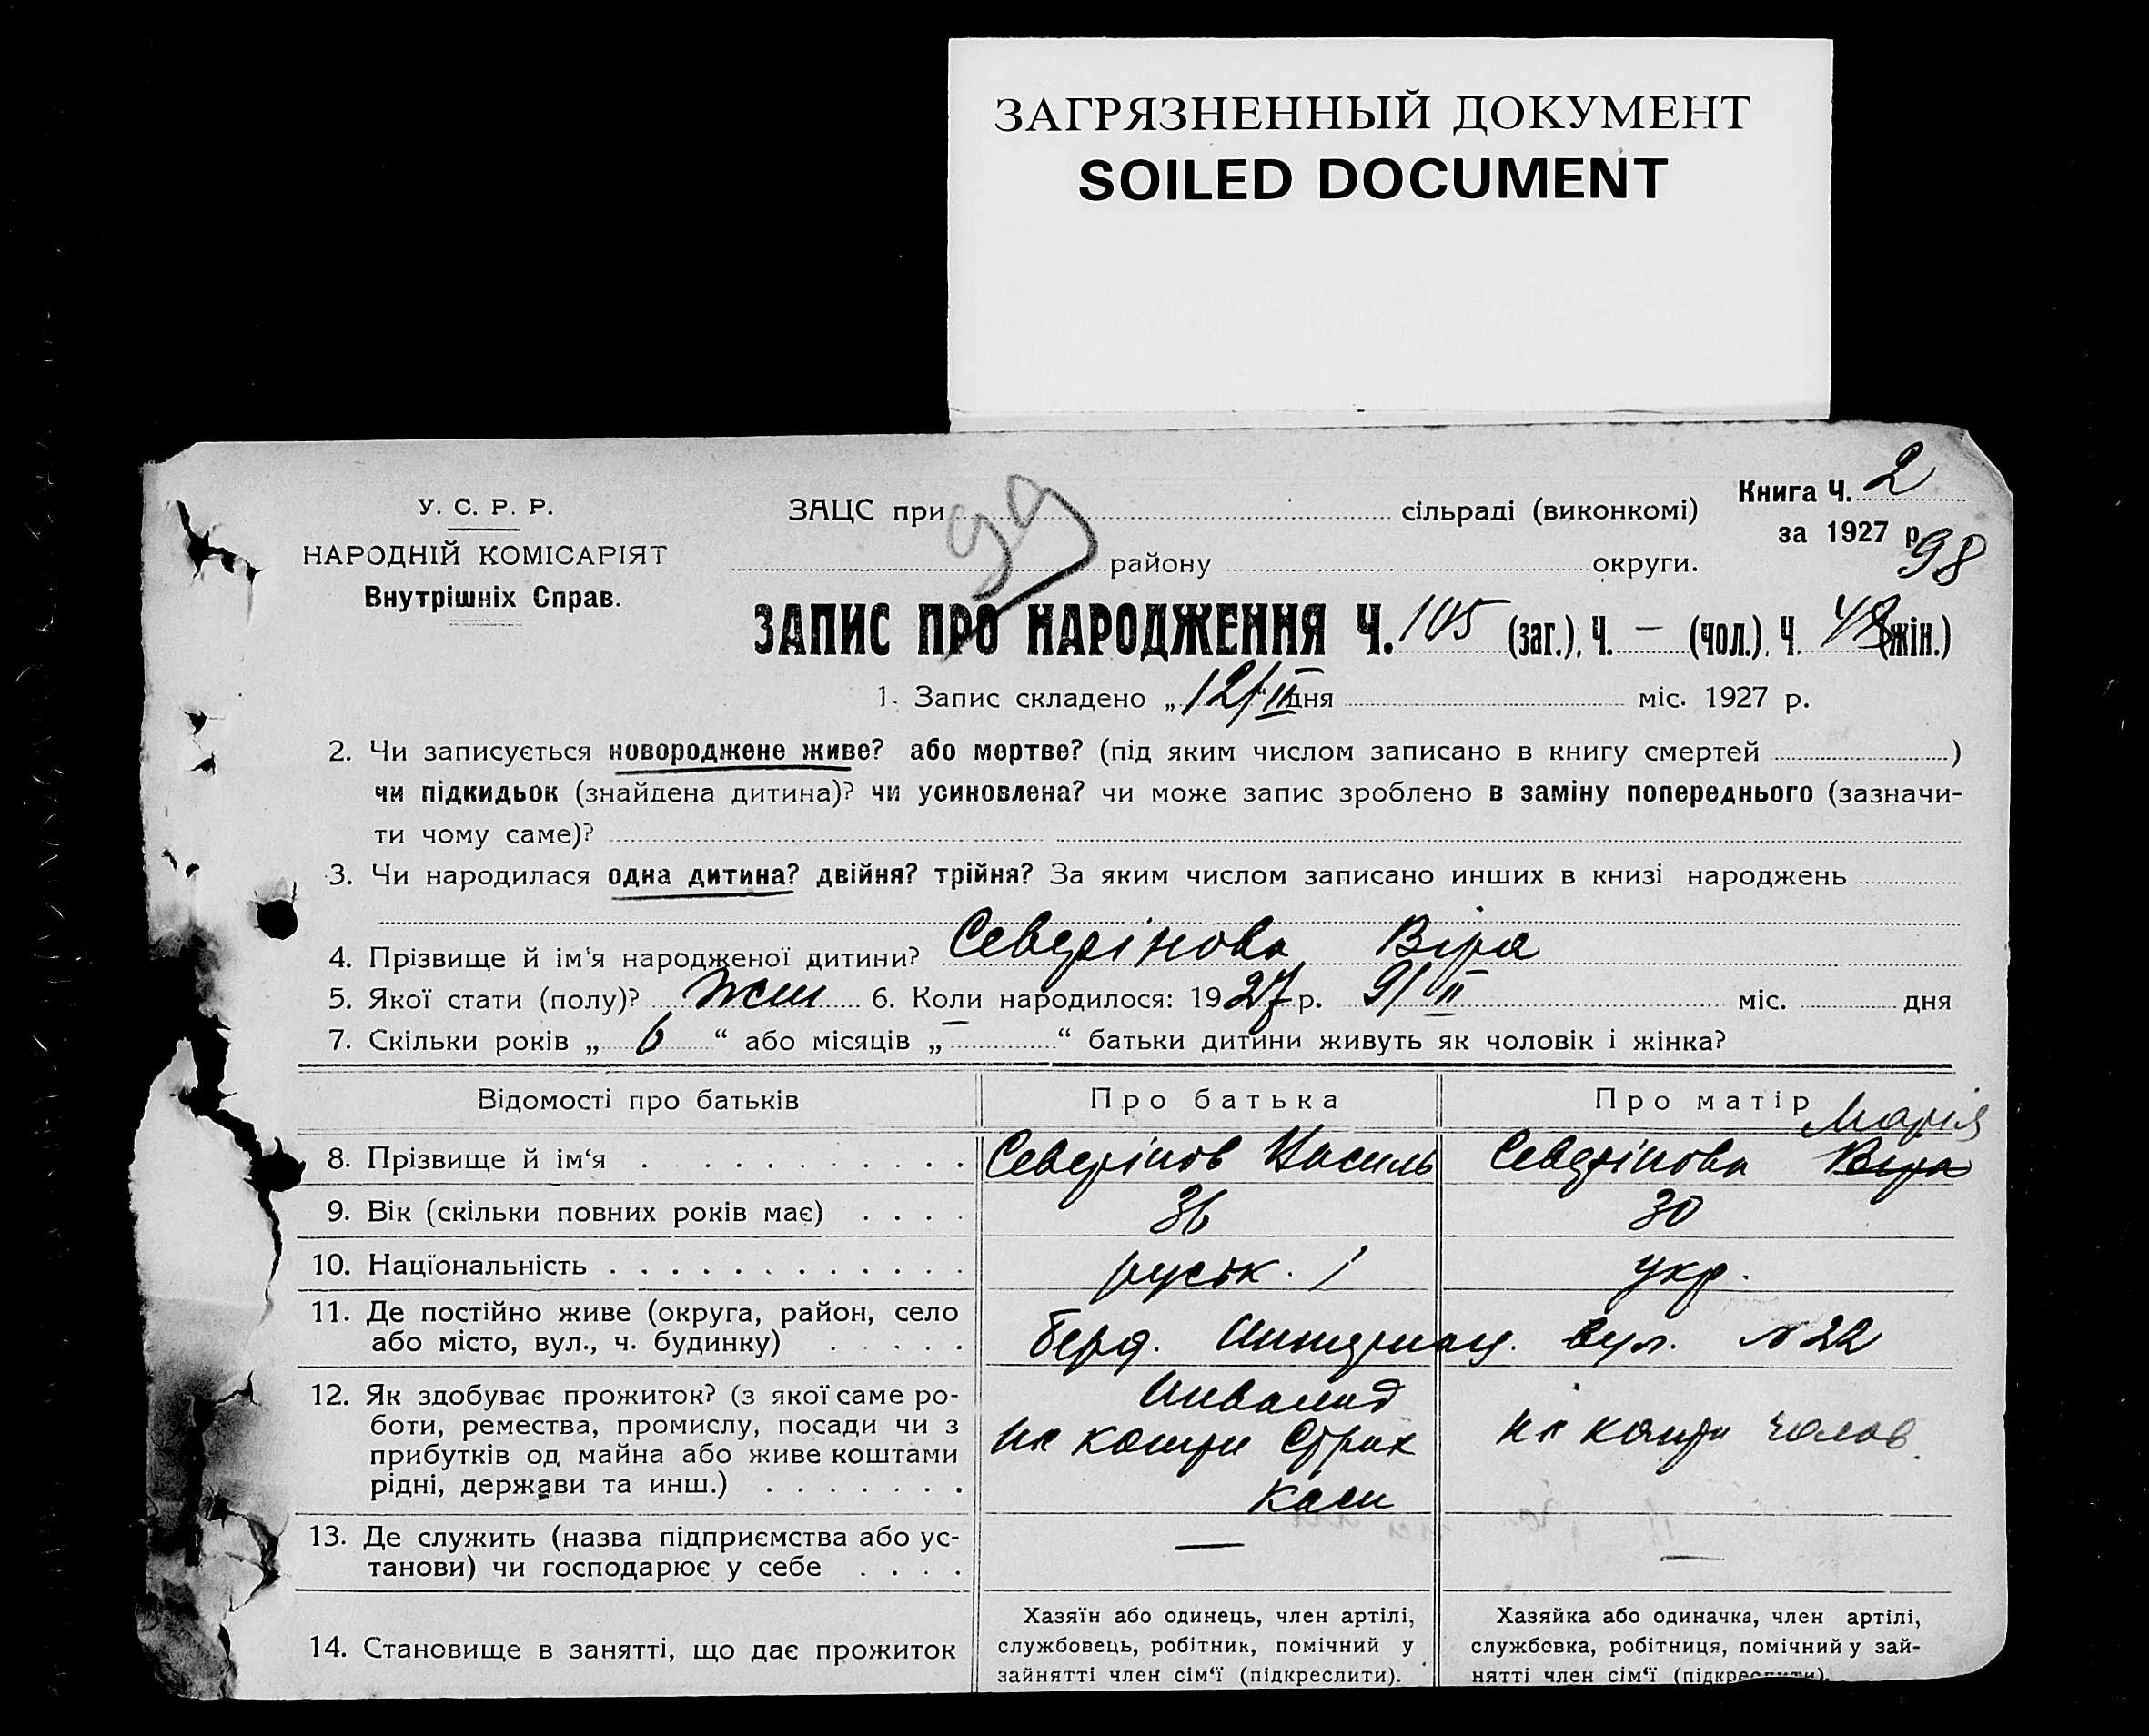 ЗАГРЯЗНЕННЫЙ ДОКУМЕНТ
SOILED DOCUMENT
Книга Ч. 2
за 1927 р.
98
У. С. Р. Р.
НАРОДНІЙ КОМІСАРІЯТ
Внутрішніх Справ.
ЗАЦС при сільраді (виконкомі)
району округи.
ЗАПИС ПРО НАРОДЖЕННЯ Ч. 105 (заг.), Ч. — (чол.), Ч. 48 (жін.)
1. Запис складено „12/II“ дня міс. 1927 р.
2. Чи записується новороджене живе? або мертве? (під яким числом записано в книгу смертей )
чи підкидьок (знайдена дитина)? чи усиновлена? чи може запис зроблено в заміну попереднього (зазначи-
ти чому саме)?
3. Чи народилася одна дитина? двійня? трійня? За яким числом записано инших в книзі народжень
4. Прізвище й ім‘я народженої дитини? Северінова Віра
5. Якої стати (полу)? жін 6. Коли народилося: 1927 р. 9/II міс. дня
7. Скільки років „ 6 “ або місяців „ — “ батьки дитини живуть як чоловік і жінка?
Відомості про батьків Про батька Про матір
Марія
8. Прізвище й ім‘я Северінов Василь Северінова Віра
9. Вік (скільки повних років має) 36 30
10. Національність руськ. укр.
11. Де постійно живе (округа, район, село
або місто, вул., ч. будинку) Берд. вул. № 22
12. Як здобуває прожиток? (з якої саме ро-
боти, ремества, промислу, посади чи з
прибутків од майна або живе коштами
рідні, держави та инш.)
Инвалид
на кошти Страх
каси
на кошти чолов.
13. Де служить (назва підприємства або ус-
танови) чи господарює у себе — —
14. Становище в занятті, що дає прожиток
Хазяїн або одинець, член артілі,
службовець, робітник, помічний у
зайнятті член сім‘ї (підкреслити).
Хазяйка або одиначка, член артілі,
службовка, робітниця, помічний у зай-
нятті член сім‘ї (підкреслити).